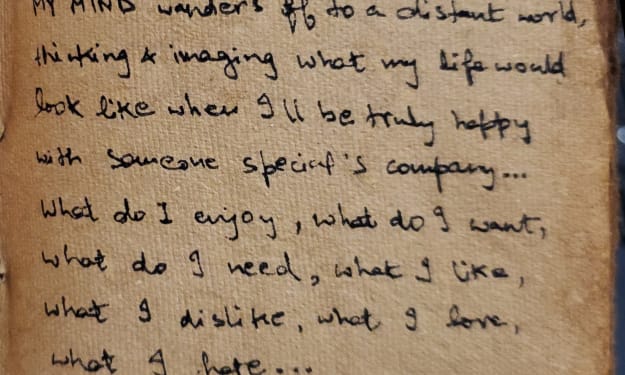 MY MIND wanders off to a distant world,
thinking & imaging what my life would
look like when I'll be truly happy
with someone special's company...
What do I enjoy, what do I want,
what do I need, what I like,
what I dislike, what I love,
what I hate...